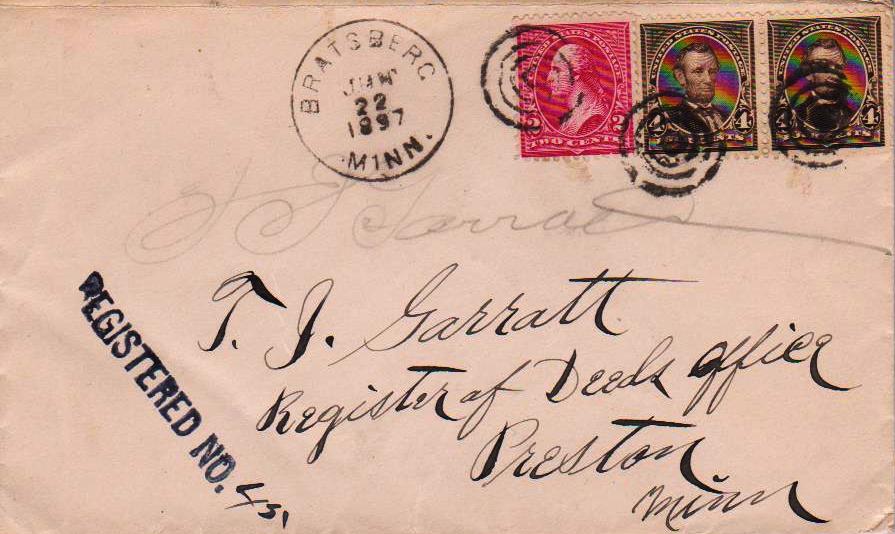 BRATSBERG
JUN
22
1897
MINN.
UNITED STATES POSTAGE
2 2
TWO CENTS
UNITED STATES POSTAGE
4 4
CENTS
UNITED STATES POSTAGE
4
CENTS
T. J. Garratt
T. J. Garratt
Register of Deeds office
Preston
Minn
REGISTERED NO. 43.